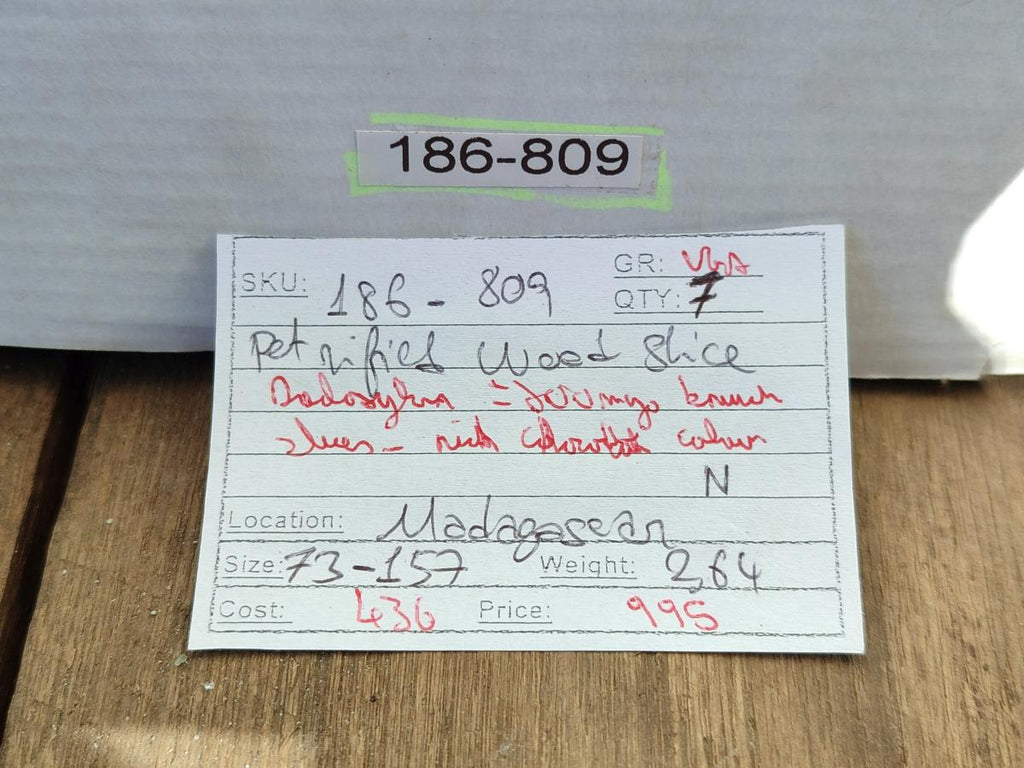 186-809
SKU: 186-809
GR: VGA
QTY: 7
Petrified Wood Slice
Dadoxylon = 200 mya branch
slices - rich chocolate colour
N
Location: Madagascar
Size: 73-157 Weight: 2,64
Cost: 436 Price: 995